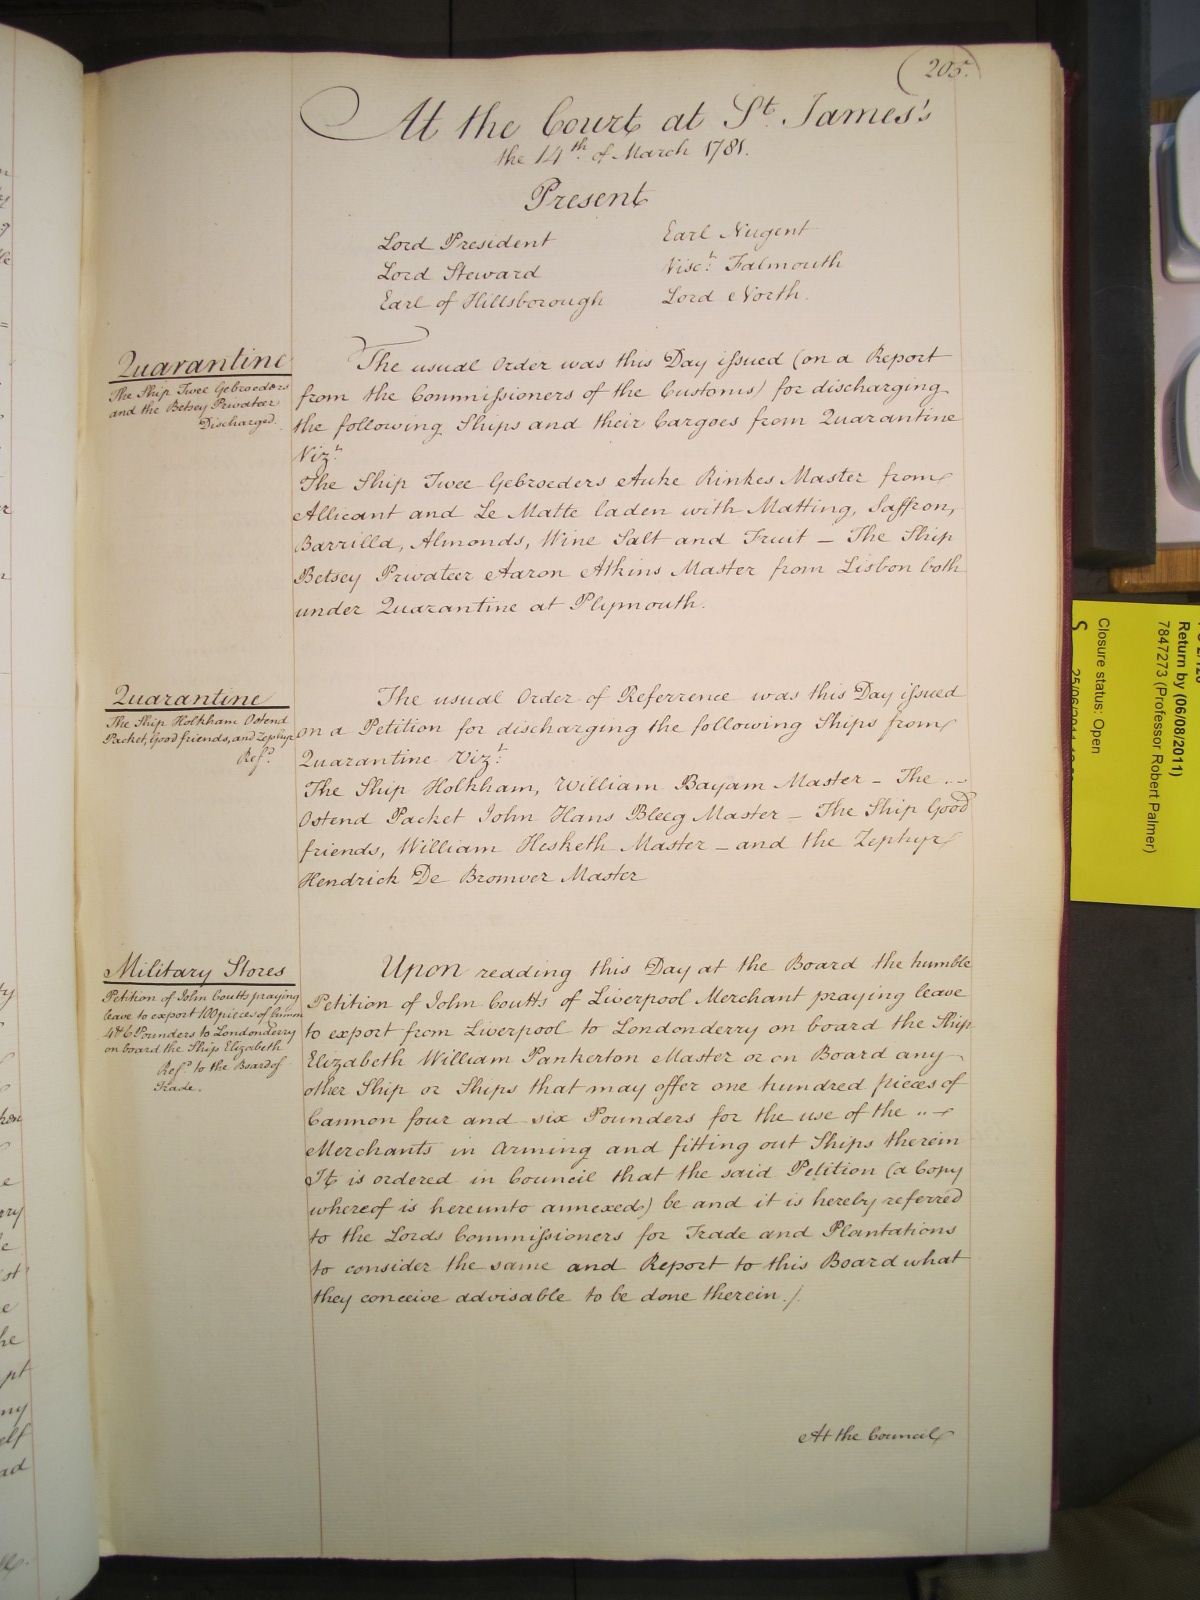 205.
At the Court at St. James's
the 14th. of March 1781.
Present
Lord President
Lord Steward
Earl of Hillsborough
Earl Nugent
Visct. Falmouth
Lord North.
Quarantine
The Ship Twee Gebroeders
and the Betsey Privateer
Discharged.
The usual Order was this Day issued (on a Report
from the Commissioners of the Customs) for discharging
the following Ships and their Cargoes from Quarantine
Vizt.
The Ship Twee Gebroeders Auke Rinkes Master from
Allicant and Le Matte laden with Matting, Saffron,
Barrilla, Almonds, Wine Salt and Fruit – The Ship
Betsey Privateer Aaron Atkins Master from Lisbon both
under Quarantine at Plymouth.
Quarantine
The Ship Holkham Ostend
Packet, Good friends, and Zephyr
Refd.
The usual Order of Referrence was this Day issued
on a Petition for discharging the following Ships from
Quarantine Vizt.
The Ship Holkham, William Bayam Master – The
Ostend Packet John Hans Bleeg Master – The Ship Good
friends, William Hesketh Master – and the Zephyr
Hendrick De Bromver Master
Military Stores
Petition of John Coutts praying
leave to export 100 pieces of Cannon
4 & 6 Pounders to Londonderry
on board the Ship Elizabeth
Refd. to the Board of
Trade.
Upon reading this Day at the Board the humble
Petition of John Coutts of Liverpool Merchant praying leave
to export from Liverpool to Londonderry on board the Ship
Elizabeth William Pankerton Master or on Board any
other Ship or Ships that may offer one hundred pieces of
Cannon four and six Pounders for the use of the
Merchants in Arming and fitting out Ships therein
It is ordered in Council that the said Petition (a Copy
whereof is hereunto annexed) be and it is hereby referred
to the Lords Commissioners for Trade and Plantations
to consider the same and Report to this Board what
they conceive advisable to be done therein ./.
At the Council
Return by (06/08/2011)
7847273 (Professor Robert Palmer)
Closure status: Open
S